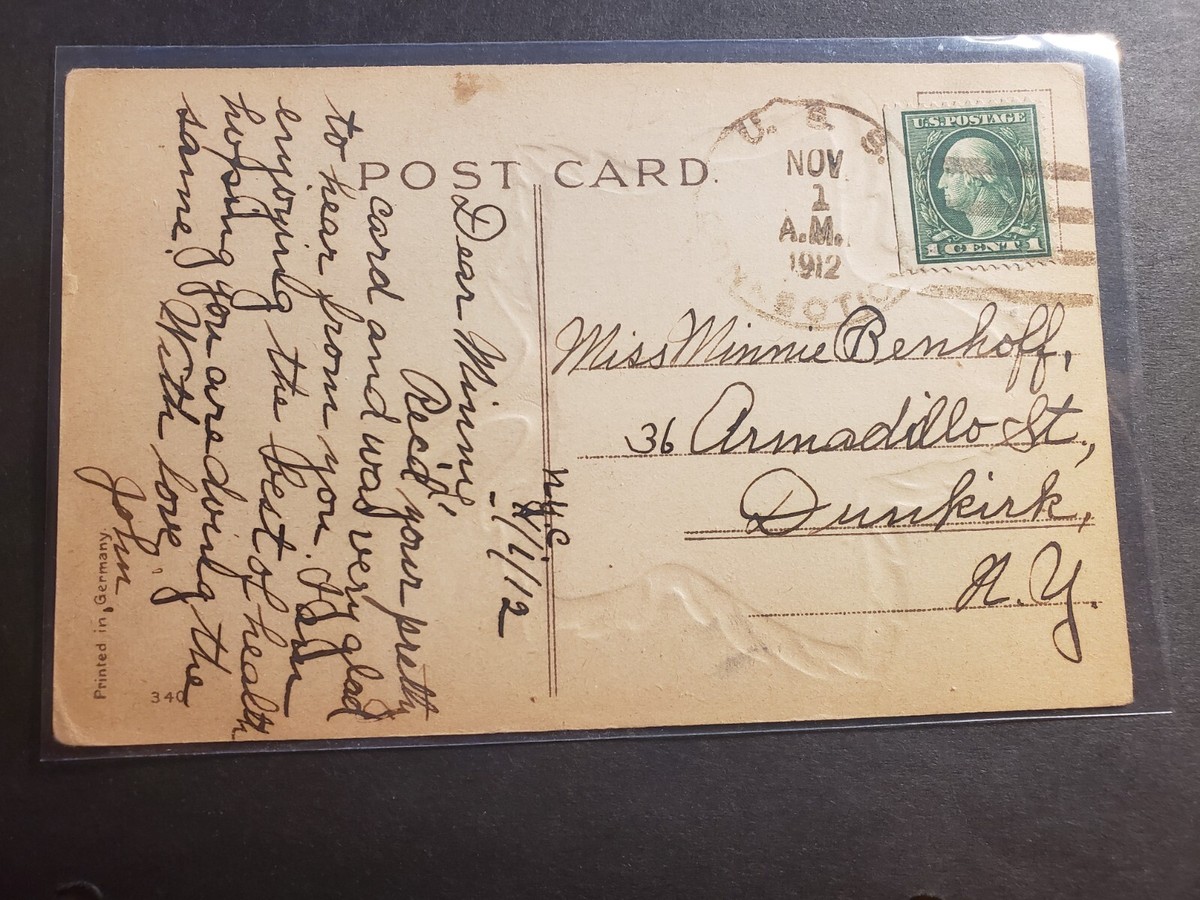 POST CARD.
U. S. S.
NOV
1
A.M.
1912
U.S. POSTAGE
1 CENT 1
Miss Minnie Benhoff,
36 Armadillo St.,
Dunkirk,
N. Y.
N.Y.C
11/1/12
Dear Minnie,
Rec'd your pretty
card and was very glad
to hear from you. I am
enjoying the best of health
hoping you are doing the
same. With love,
John
Printed in Germany
340